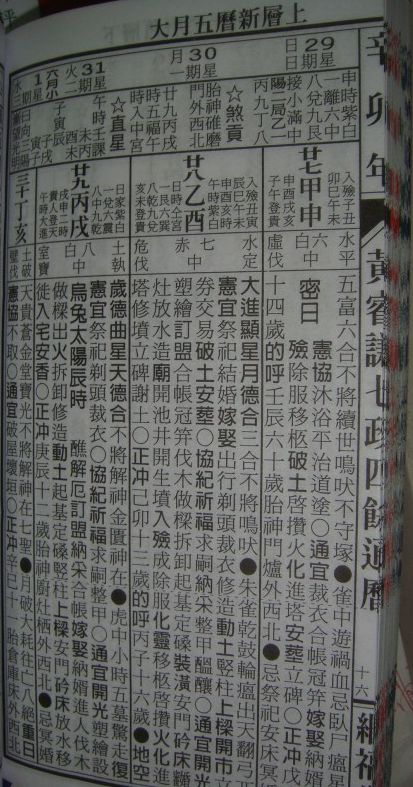 上層新曆五月大
辛卯年
黃睿謙七政四餘通曆
十六
繼福
29星期日
申時紫白
一離六中
八兌九艮
接小滿中
陽二局乙一
丙九丁八
入殮子丑
卯巳午未
廿七甲申
申酉戌亥
子午登貴
水平
六中
白
虛伐
五富六合不將續世鳴吠不守塚●雀中遊禍血忌臥尸瘟星
憲協沐浴平治道塗○通宜裁衣合帳冠笄嫁娶納婿
密日
殮除服移柩破土啓攢火化進塔安葬立碑○正冲戊
十四歲的呼壬辰六十歲胎神門爐外西北●忌祭祀安床冥婚
30星期一
☆煞貢
胎神碓磨
門外西北
廿九丙戌
時五福午
時入中宮
入殮丑寅
辰巳午未
申酉亥時
午時紫白
廿八乙酉
一艮六巽
八乾九兌
日時仝宮
水定
七中
赤
危伐
大進顯星月德合三合不將鳴吠●朱雀乾鼓輪瘟出天翻弓西
憲宜祭祀結婚嫁娶出行剃頭裁衣修造動土竪柱上樑開市立
券交易破土安葬○協紀祈福求嗣納采整甲醞釀○通宜開光
塑繪訂盟合帳冠笄伐木做樑拆卸起基定磉裝潢安門砛床糶
灶放水造廟開池井開生墳入殮成除服化靈移柩啓攢火化進
塔修墳立碑謝土○正冲己卯十三歲的呼丙子十六歲●地空
31星期二
☆直星
午時壬課
未丙
酉未
子寅辰
日家紫白
一兌六震
八中九乾
廿九丙戌
戌申二時
貴人登天
午時大進
土執
八中
白
室寶
歲德曲星天德合不將解神金匱神在●虎中小時五墓驚走復
憲宜祭祀剃頭裁衣○協紀祈福求嗣整甲○通宜開光塑繪設
烏兔太陽辰時
醮解厄訂盟納采合帳嫁娶納婿進人伐木
做樑出火拆卸修造動土起基定磉竪柱上樑安門砛床放水移
徙入宅安香○正冲庚辰十二歲胎神廚灶栖外西北●忌冥婚
1星期三
六月小
三十丁亥
土破
壁伐
天貴蒼金堂寶光不將解神在七聖●月破大耗往亡八絕重日
憲協不取○通宜破屋壞垣○正冲
胎倉庫床外西北